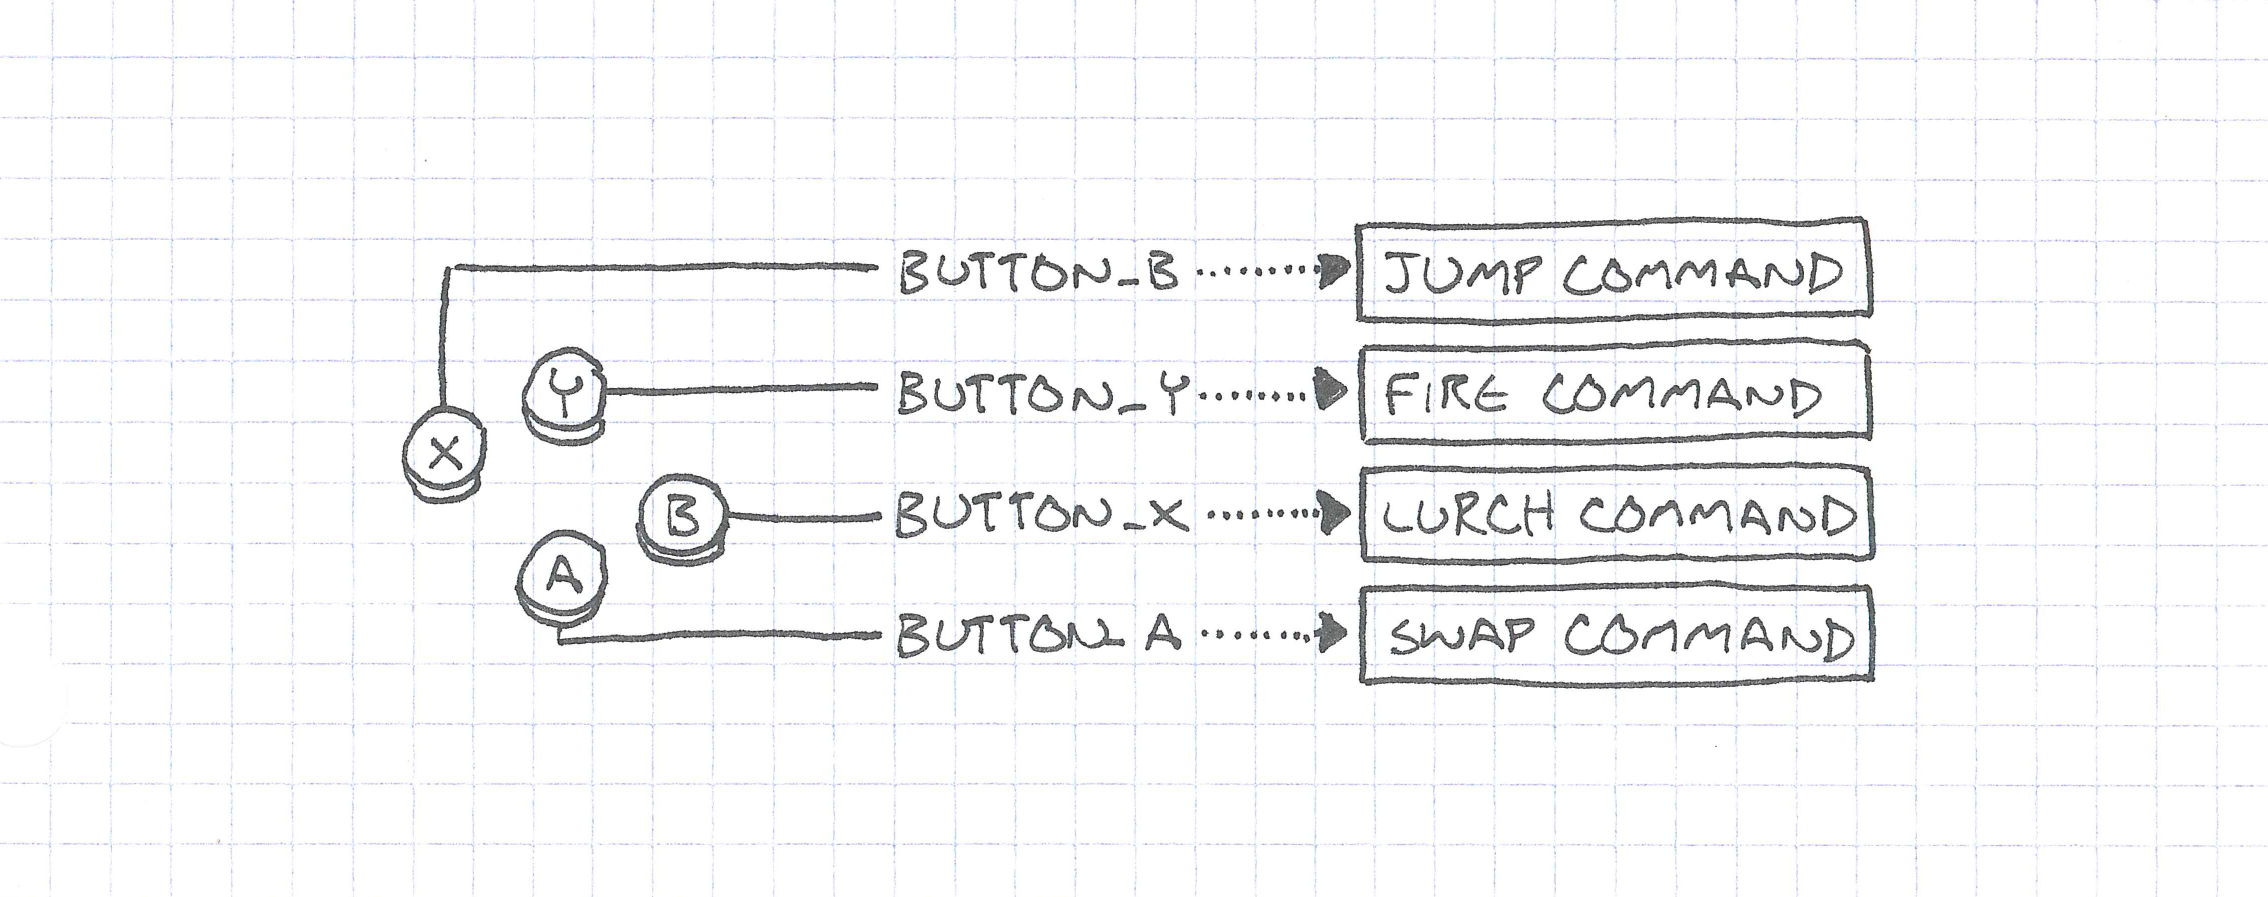 BUTTON_B JUMP COMMAND
Y BUTTON_Y FIRE COMMAND
X
B BUTTON_X LURCH COMMAND
A
BUTTON_A SWAP COMMAND